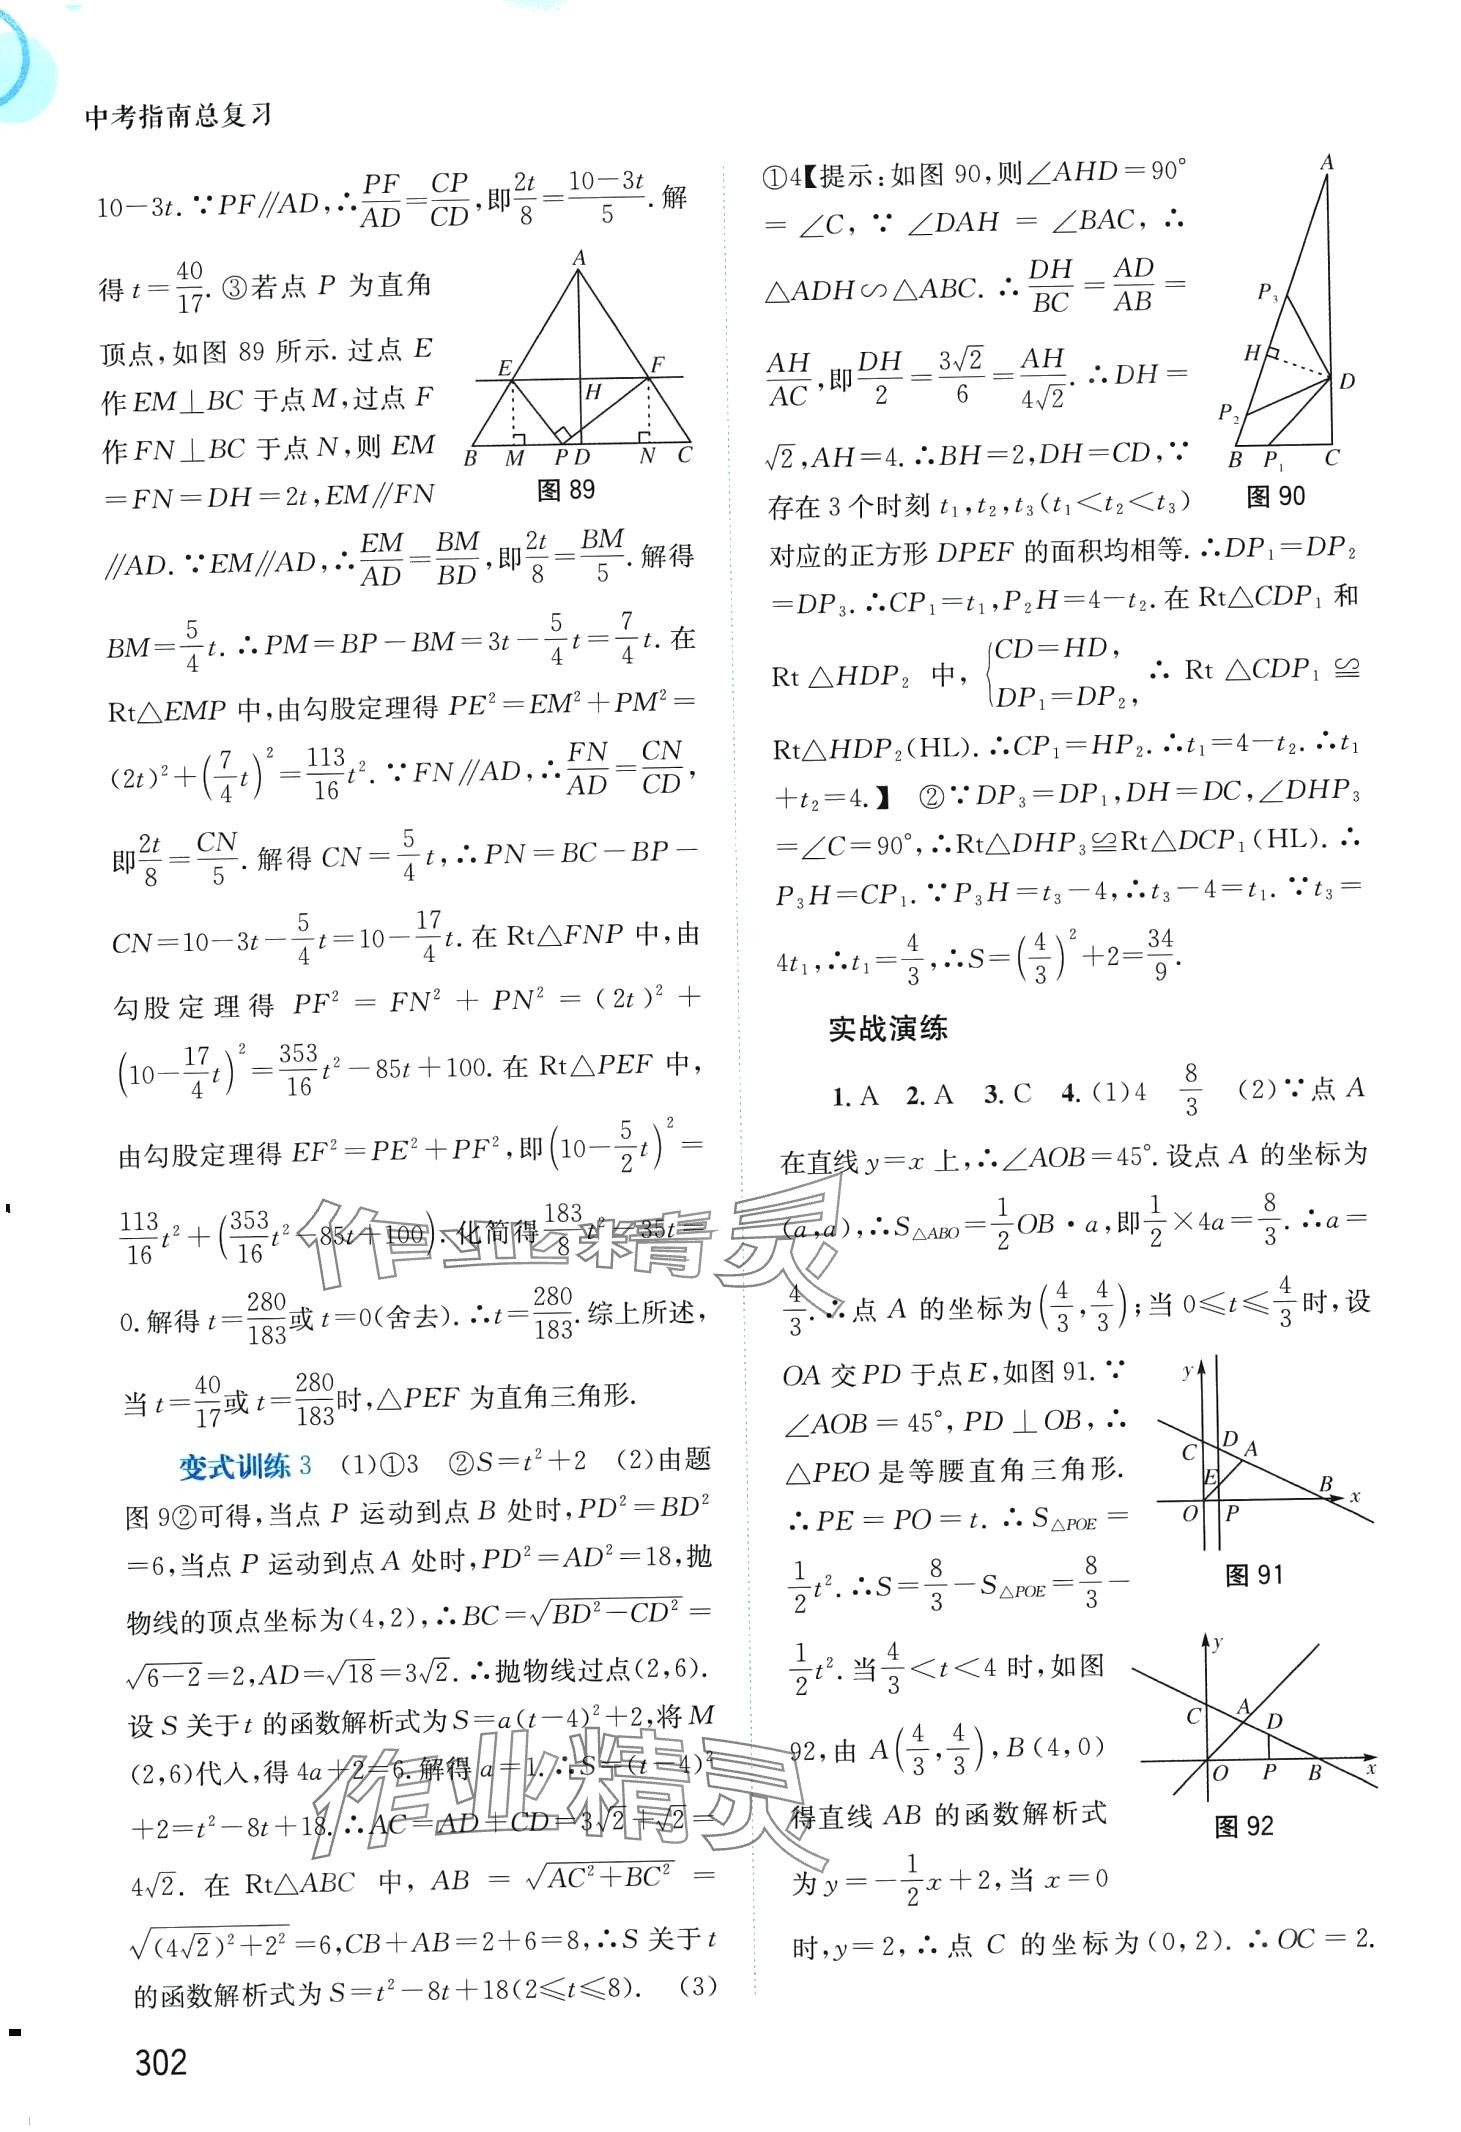 中考指南总复习
10－3t. ∵PF∥AD, ∴PF/AD＝CP/CD, 即2t/8＝(10－3t)/5. 解
得 t＝40/17. ③若点 P 为直角
顶点, 如图 89 所示. 过点 E
作 EM⊥BC 于点 M, 过点 F
作 FN⊥BC 于点 N, 则 EM
＝FN＝DH＝2t, EM∥FN
A
E
F
H
B M P D N C
图 89
∥AD. ∵EM∥AD, ∴EM/AD＝BM/BD, 即2t/8＝BM/5. 解得
BM＝5/4t. ∴PM＝BP－BM＝3t－5/4t＝7/4t. 在
Rt△EMP 中, 由勾股定理得 PE²＝EM²＋PM²＝
(2t)²＋(7/4t)²＝113/16t². ∵FN∥AD, ∴FN/AD＝CN/CD,
即2t/8＝CN/5. 解得 CN＝5/4t, ∴PN＝BC－BP－
CN＝10－3t－5/4t＝10－17/4t. 在 Rt△FNP 中, 由
勾股定理得 PF²＝FN²＋PN²＝(2t)²＋
(10－17/4t)²＝353/16t²－85t＋100. 在 Rt△PEF 中,
由勾股定理得 EF²＝PE²＋PF², 即(10－5/2t)²＝
113/16t²＋(353/16t²－85t＋100). 化简得183/8t²－35t＝
0. 解得 t＝280/183或 t＝0(舍去). ∴t＝280/183. 综上所述,
当 t＝40/17或 t＝280/183时, △PEF 为直角三角形.
变式训练 3 (1)①3 ②S＝t²＋2 (2)由题
图 9②可得, 当点 P 运动到点 B 处时, PD²＝BD²
＝6, 当点 P 运动到点 A 处时, PD²＝AD²＝18, 抛
物线的顶点坐标为(4,2), ∴BC＝√(BD²－CD²)＝
√(6－2)＝2, AD＝√18＝3√2. ∴抛物线过点(2,6).
设 S 关于 t 的函数解析式为 S＝a(t－4)²＋2, 将 M
(2,6)代入, 得 4a＋2＝6. 解得 a＝1. ∴S＝(t－4)²
＋2＝t²－8t＋18. ∴AC＝AD＋CD＝3√2＋√2＝
4√2. 在 Rt△ABC 中, AB＝√(AC²＋BC²)＝
√((4√2)²＋2²)＝6, CB＋AB＝2＋6＝8, ∴S 关于 t
的函数解析式为 S＝t²－8t＋18(2≤t≤8). (3)
302
①4【提示: 如图 90, 则∠AHD＝90°
＝∠C, ∵∠DAH＝∠BAC, ∴
△ADH∽△ABC. ∴DH/BC＝AD/AB＝
AH/AC, 即DH/2＝3√2/6＝AH/4√2. ∴DH＝
√2, AH＝4. ∴BH＝2, DH＝CD, ∵
存在 3 个时刻 t₁, t₂, t₃(t₁＜t₂＜t₃)
A
P₃
H
D
P₂
B P₁ C
图 90
对应的正方形 DPEF 的面积均相等. ∴DP₁＝DP₂
＝DP₃. ∴CP₁＝t₁, P₂H＝4－t₂. 在 Rt△CDP₁ 和
Rt△HDP₂ 中, {CD＝HD, DP₁＝DP₂, ∴Rt△CDP₁≌
Rt△HDP₂(HL). ∴CP₁＝HP₂. ∴t₁＝4－t₂. ∴t₁
＋t₂＝4.】 ②∵DP₃＝DP₁, DH＝DC, ∠DHP₃
＝∠C＝90°, ∴Rt△DHP₃≌Rt△DCP₁(HL). ∴
P₃H＝CP₁. ∵P₃H＝t₃－4, ∴t₃－4＝t₁. ∵t₃＝
4t₁, ∴t₁＝4/3, ∴S＝(4/3)²＋2＝34/9.
实战演练
1. A 2. A 3. C 4. (1)4 8/3 (2)∵点 A
在直线 y＝x 上, ∴∠AOB＝45°. 设点 A 的坐标为
(a,a), ∴S△ABO＝1/2OB·a, 即1/2×4a＝8/3. ∴a＝
4/3. ∴点 A 的坐标为(4/3,4/3); 当 0≤t≤4/3时, 设
OA 交 PD 于点 E, 如图 91. ∵
∠AOB＝45°, PD⊥OB, ∴
△PEO 是等腰直角三角形.
∴PE＝PO＝t. ∴S△POE＝
1/2t². ∴S＝8/3－S△POE＝8/3－
y
C D A
E
B x
O P
图 91
1/2t². 当4/3＜t＜4 时, 如图
92, 由 A(4/3,4/3), B(4,0)
得直线 AB 的函数解析式
为 y＝－1/2x＋2, 当 x＝0
y
C A D
O P B x
图 92
时, y＝2, ∴点 C 的坐标为(0,2). ∴OC＝2.
作业精灵
作业精灵